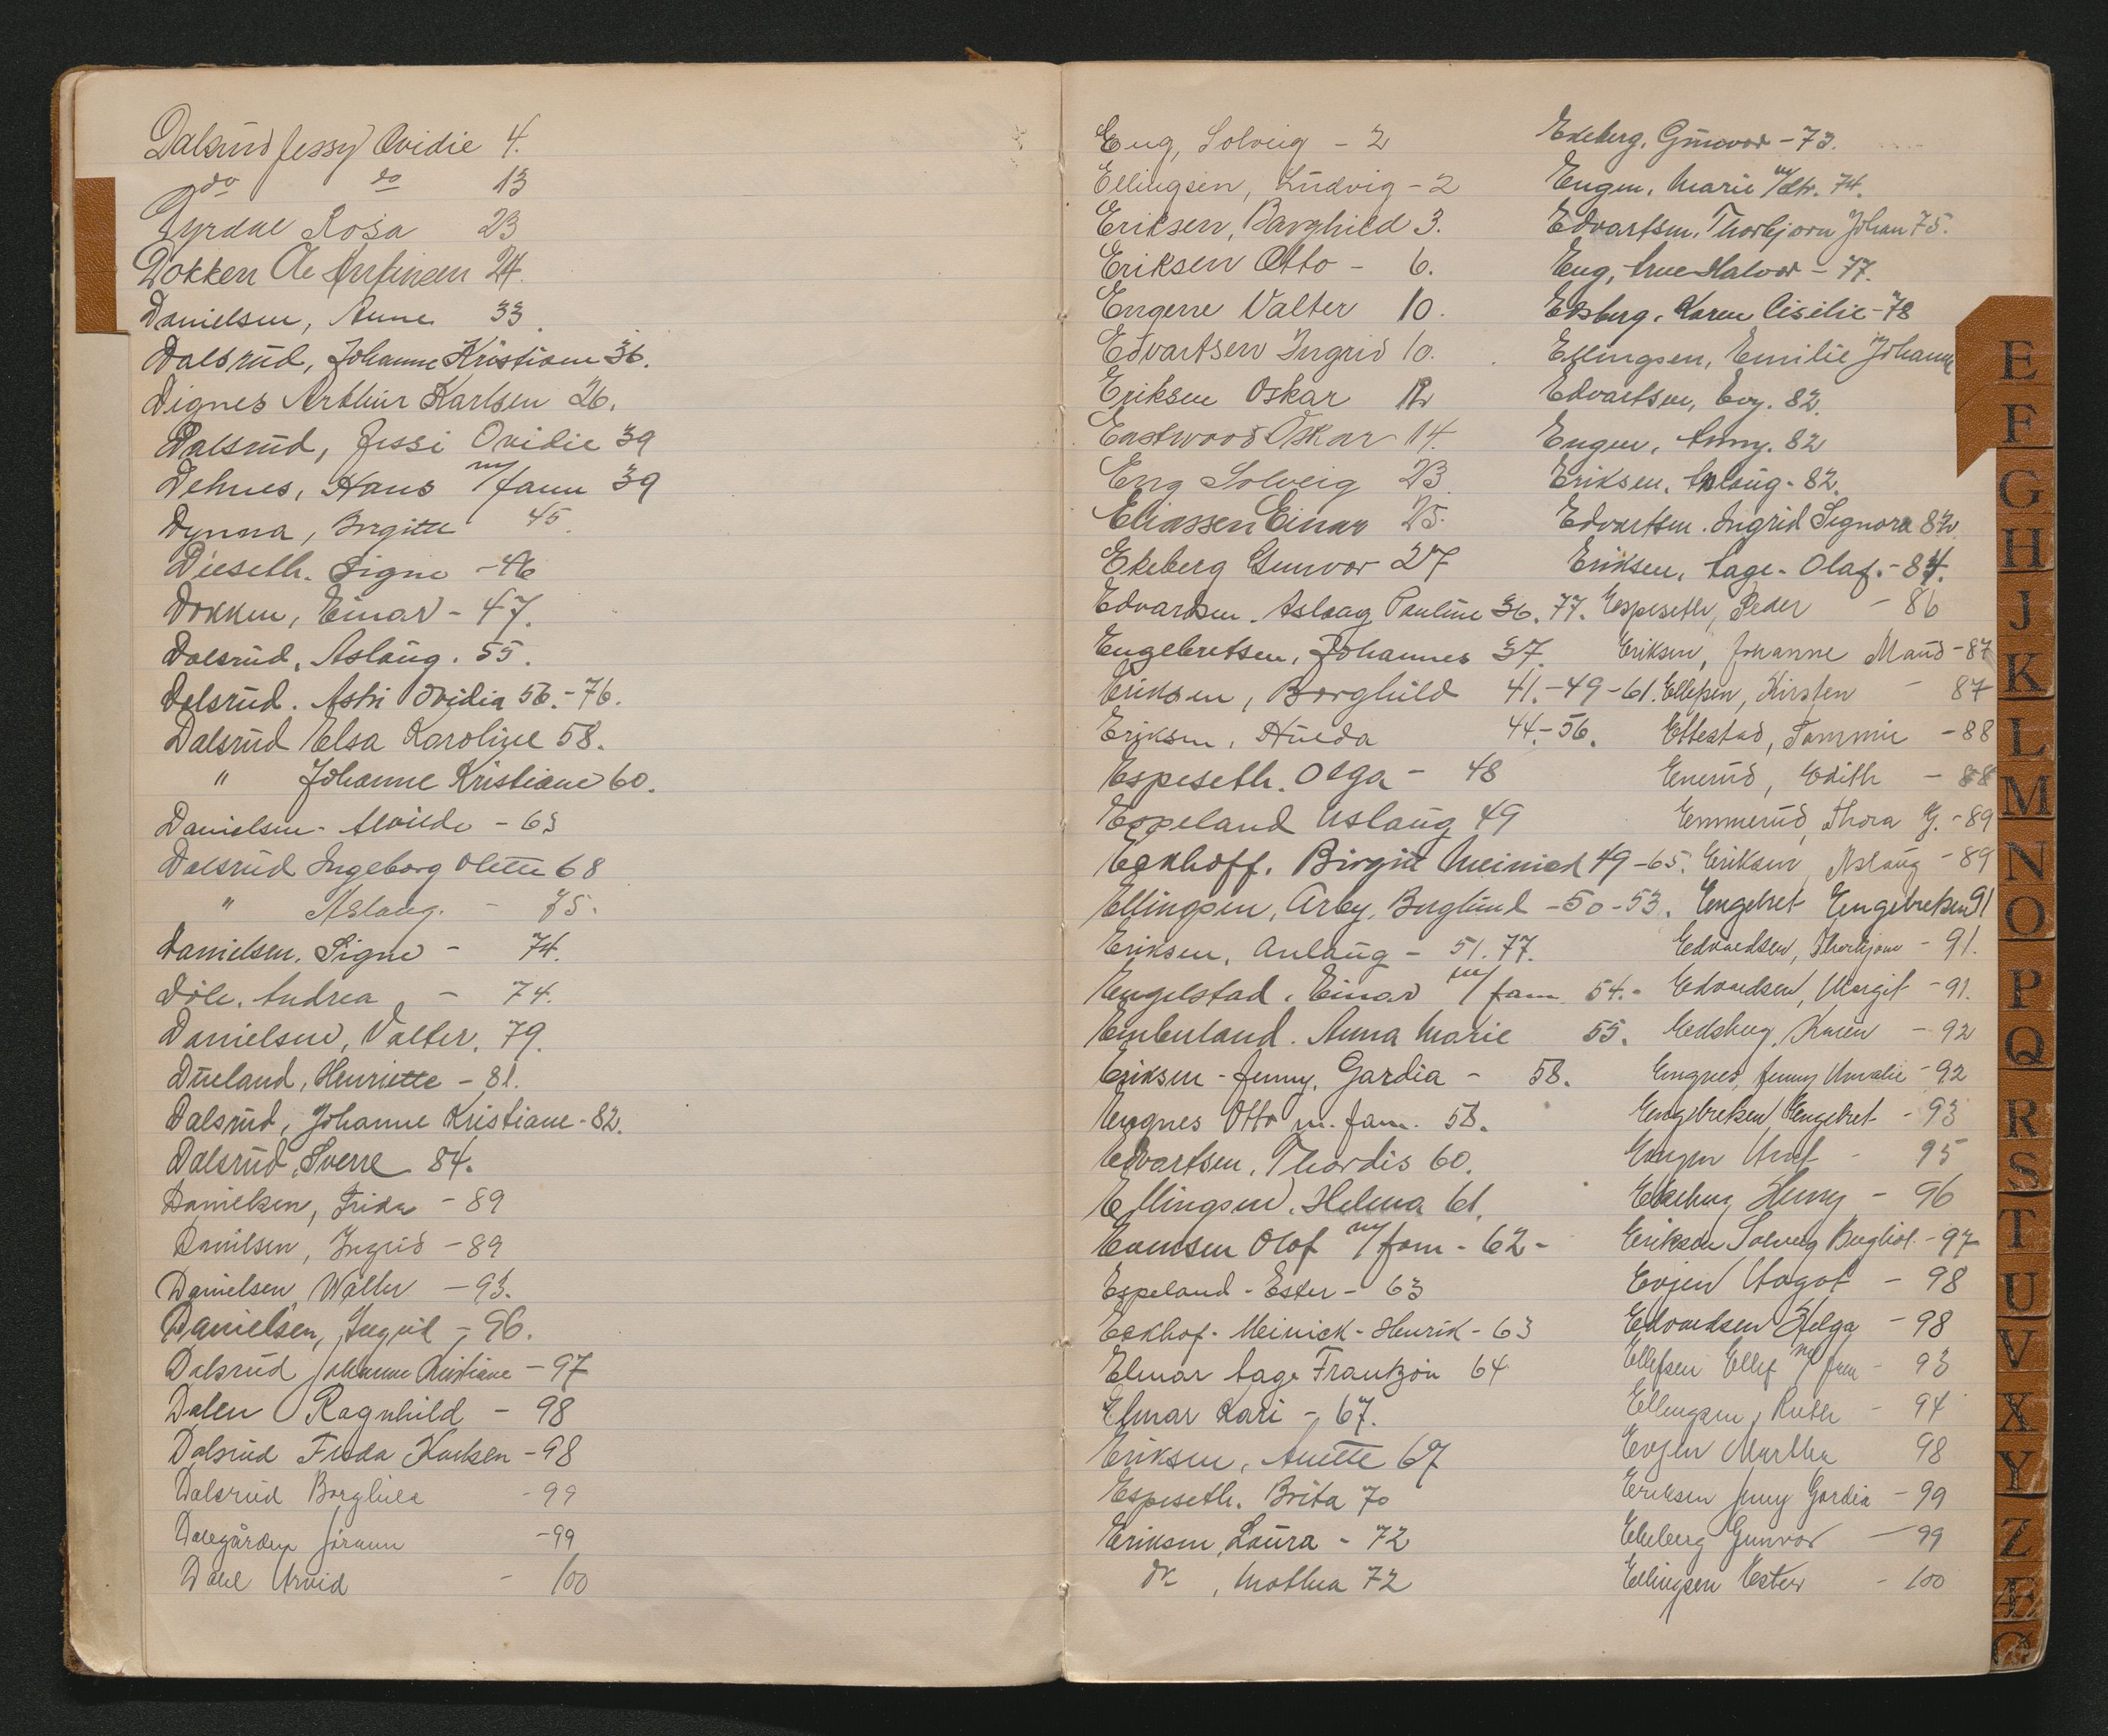 Dalsrud Jessy Ovidie 4.
do do 13
Dyrdal Rosa 23
Dokken 24.
Danielsen, Anne 33.
Dalsrud, Johanne Kristiane 36.
Dignes Arthur Karlsen 26.
Dalsrud, Jessi Ovidie 39
Dehnes, Hans m/fam 39
Dynna, Birgitte 45.
Dieseth. Signe - 46
Dokken, Einar - 47.
Dalsrud, Aslaug. 55.
Dalsrud. Astri Ovidia 56. - 76.
Dalsrud Elsa Karoline 58.
" Johanne Kristiane 60.
Danielsen - Alvilde - 63
Dalsrud Ingeborg Olette 68
" Aslaug. - 75.
Danielsen, Signe - 74.
Døle, Andrea - 74.
Danielsen, Valter, 79.
Dueland, Henriette - 81.
Dalsrud, Johanne Kristiane - 82.
Dalsrud, Sverre 84.
Danielsen, Frida - 89
Danilsen, Ingrid - 89
Danielsen Walter - 93.
Danielsen, Ingrid - 96.
Dalsrud Johanne Kristiane - 97
Dalen Ragnhild - 98
Dalsrud Frida Karlsen - 98
Dalsrud Borghild - 99
Dalegården Jørunn - 99
Dahl Arvid - 100
Eng, Solveig - 2
Ellingsen, Ludvig - 2
Eriksen, Borghild 3.
Eriksen Otto - 6.
Engene Valter 10.
Edvartsen Ingrid 10.
Eriksen Oskar 12
Eastwood Oskar 14.
Eng Solveig 23
Eliassen Einar 25.
Ekeberg Gunvor 27
Edvardsen. Aslaug Pauline 36. 77.
Engebretsen, Johannes 37.
Eriksen, Borghild 41. - 49 - 61.
Eriksen, Hulda 44. - 56.
Espeseth. Olga - 48
Espeland Aslaug 49
Eckhoff. Birgit Meinich 49 - 65.
Ellingsen, Arby, Berglund - 50 - 53.
Eriksen, Anlaug - 51. 77.
Engelstad, Einar m/fam 54. -
Embenland. Anna Marie 55.
Eriksen - Jenny, Gardia - 58.
Engnes Otto m. fam. 58.
Edvartsen, Thordis 60.
Ellingsen, Helma 61.
Evensen Olof m/fam - 62 -
Espeland - Ester - 63
Eckhof - Meinick - Henrik - 63
Elmar Aage Frantzøn 64
Elmar Kari - 67.
Eriksen, Anette 67
Espeseth. Brita 70
Eriksen, Laura - 72
do, Mathea 72
Ekeberg, Gunvor - 73.
Engen, Marie m/dtr. 74.
Edvartsen, Thorbjørn Johan 75.
Eng, Arne Halvor - 77.
Edsberg, Karen Cisilie - 78
Ellingsen, Emilie Johanne
Edvartsen, Evy. 82.
Engen, Anny. 82
Eriksen, Anlaug - 82.
Edvartsen. Ingrid Signora 82.
Eriksen, Aage - Olaf. - 84.
Espeseth, Peder - 86
Eriksen, Johanne Maud - 87
Ellefsen, Kirsten - 87
Ettestad, Tommie - 88
Enerud, Edith - 88
Emmerud, Thora G. - 89
Eriksen, Aslaug - 89
Engebret Engebretsen 91
Edvardsen, Thorbjørn - 91.
Edvardsen, Margit - 91.
Edsberg, Karen - 92
Engnes, Jenny Amalie - 92
Engebretsen, Engebret - 93
Engen - 95
Ekeberg Henry - 96
Eriksen Solveig - 97
Evjen Aagot - 98
Edvardsen Helga - 98
Ellefsen Ellef m/fam - 93
Ellingsen, Ruth - 94
Evjen Martha 98
Eriksen Jenny Gardia - 99
Ekeberg Gunvor - 99
Ellingsen Ester - 100
E
F
G
H
J
K
L
M
N
O
P
Q
R
S
T
U
V
X
Y
Z
Æ